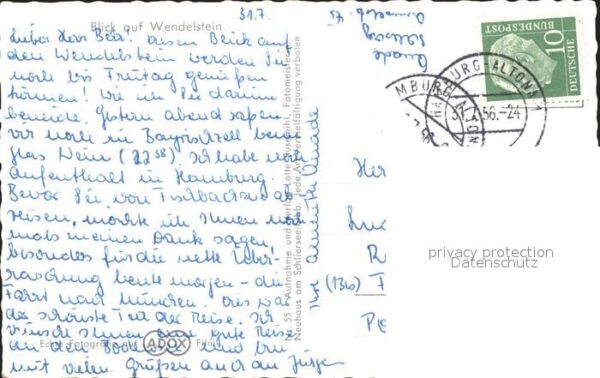 31.7.
Blick auf Wendelstein
Lieber Herr Diesen Blick auf
den Wendelstein werden Sie
noch bis Freitag genießen
können! Wie ich Sie darum
beneide. Gestern abend saßen
wir noch in Bayrischzell beim
Glas Wein (22 58). Ich habe noch
Aufenthalt in Hamburg.
Bevor Sie von Fischbachau ab
reisen, möchte ich Ihnen noch
mals meinen Dank sagen,
besonders für die nette Über-
raschung heute morgen - die
Fahrt nach München. Das war
der schönste Teil der Reise. Ich
wünsche Ihnen eine gute Reise
an den Bodensee und bin
mit vielen Grüßen auch an
Ihre Annemarie
Echte Fotografie auf ADOX Film
Nr. 55 Aufnahme und Verlag Lotte Fotomeisterin
Neuhaus am Schliersee/Obb. Jede Art Vervielfältigung verboten
10
DEUTSCHE
BUNDESPOST
HAMBURG-ALTONA
56.-24
Her
R
(13b) F
privacy protection
Datenschutz